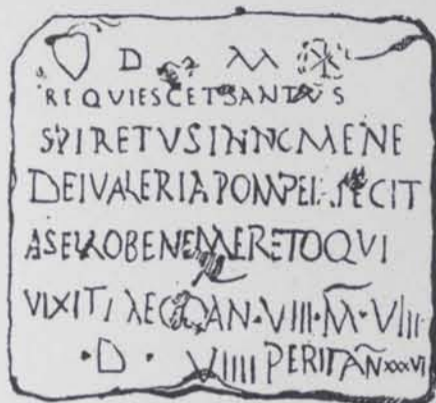 D M
REQVIESCET SANTVS
SPIRETVS IN NOMENE
DEI VALERIA POMPEI FECIT
ASELLO BENEMERETO QVI
VIXIT AN·VIII·M·VIII
·D· VIIII PERIT AN XXXVI